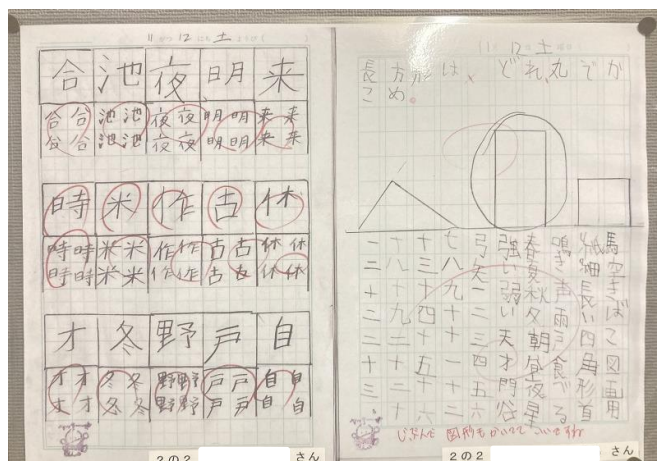 11がつ12にち土ようび
合池夜明来
合合池池夜夜明明来来
合合池池夜夜明明来来
時米作古休
時時米米作作古古休休
時時米米作作古古休休
才冬野戸自
才才冬冬野野戸戸自自
才才冬冬野野戸戸自自
2の2 さん
11 12 土
長方形は、どれ、丸でか
こめ。
馬空きばこ図画用
紙細長い四角形首
鳴き声雨戸食べる
春夏秋冬朝昼夜星
強い弱い天才門谷
弓矢一二三四五六
七八九十十一十二
十三十四十五十六
十八十九二十二十
二三十二二十三
じぶんで図形もかいててすごいですね
2の2 さん